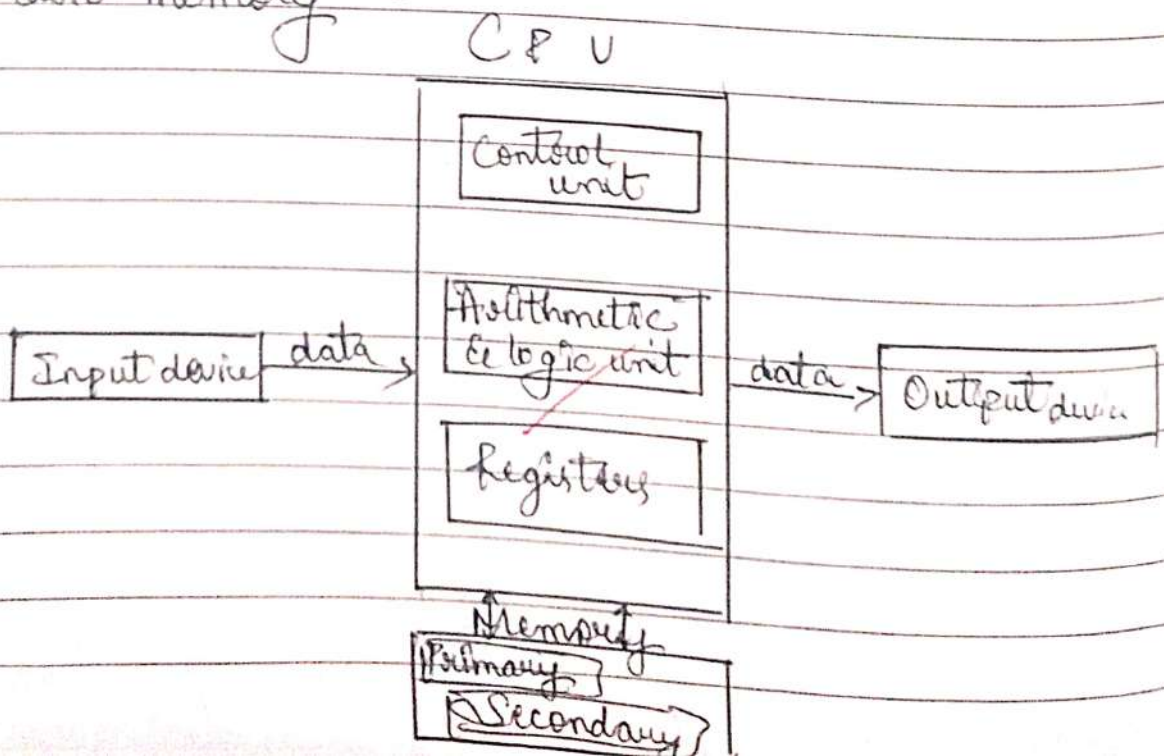 memory
CPU
Control
unit
Arithmetic
& logic unit
Input device
data
data
Output device
Registers
Memory
Primary
Secondary